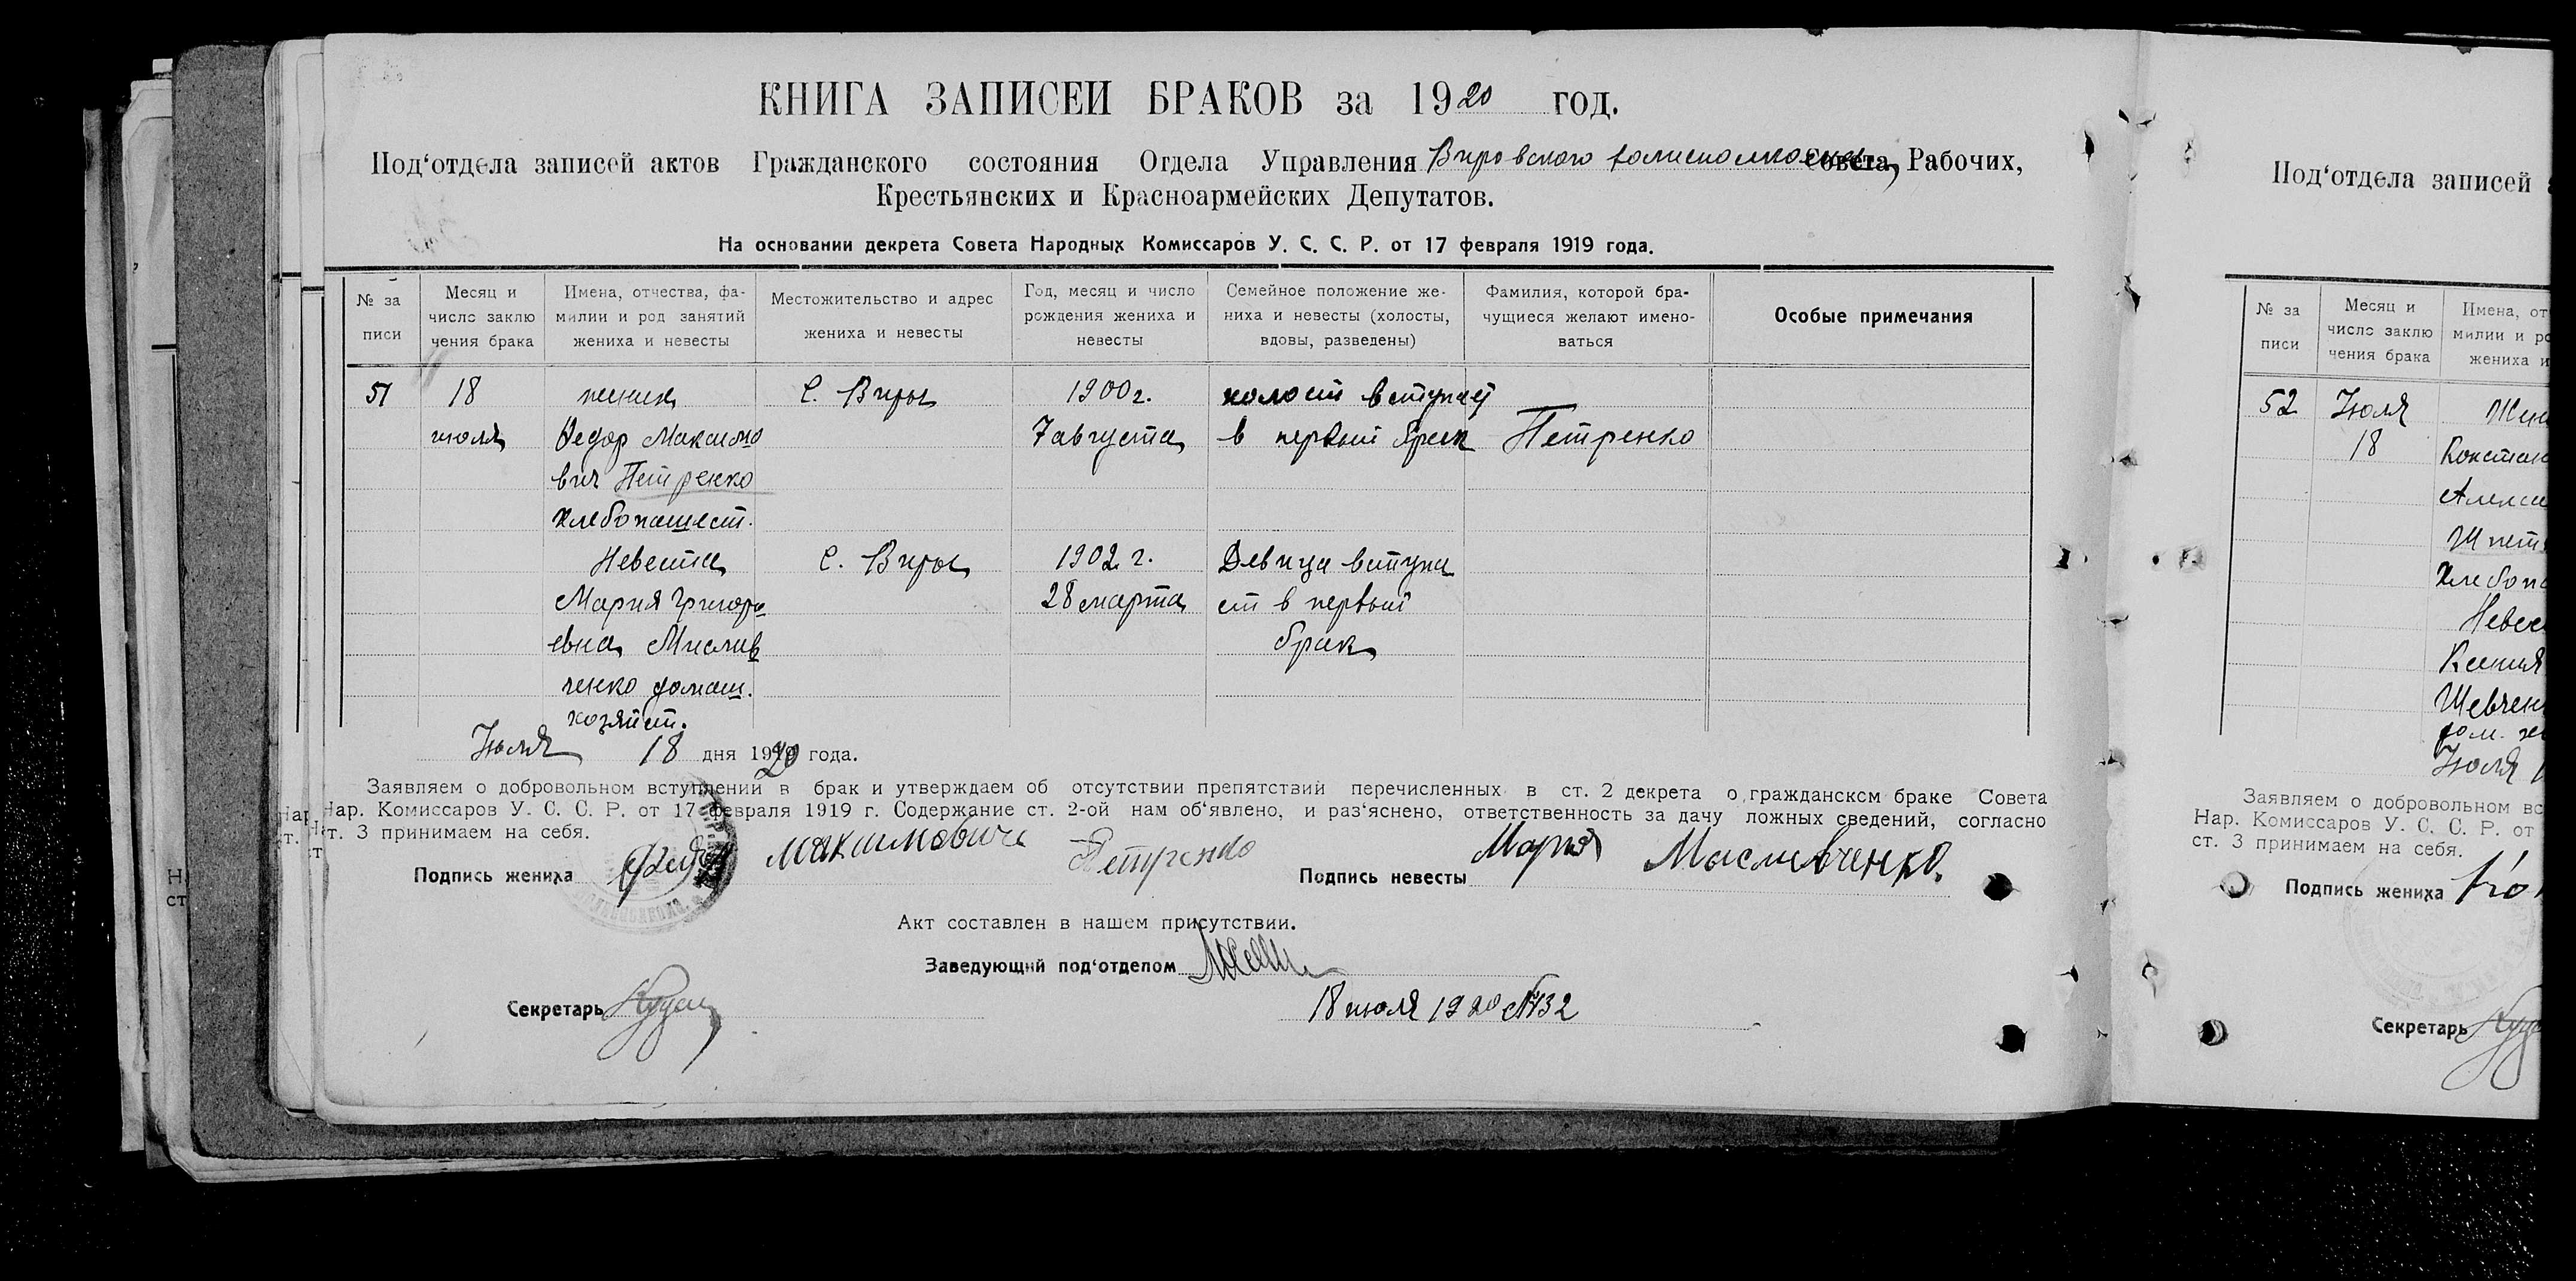 КНИГА ЗАПИСЕЙ БРАКОВ за 1920 год.
Под‘отдела записей актов Гражданского состояния Отдела Управления Вировского волисполкома Совета Рабочих,
Крестьянских и Красноармейских Депутатов.
На основании декрета Совета Народных Комиссаров У. С. С. Р. от 17 февраля 1919 года.
№ за
писи
Месяц и
число заклю
чения брака
Имена, отчества, фа-
милии и род занятий
жениха и невесты
Местожительство и адрес
жениха и невесты
Год, месяц и число
рождения жениха и
невесты
Семейное положение же-
ниха и невесты (холосты,
вдовы, разведены)
Фамилия, которой бра-
чущиеся желают имено-
ваться
Особые примечания
51
18
июля
жених
Федор Максимо
вич Петренко
хлебопашест.
С. Виры
1900 г.
7 августа
холост вступает
в первый брак
Петренко
Невеста
Мария Григори
евна Мислив
ченко домаш.
хозяйст.
С. Виры
1902 г.
28 марта
Девица вступа
ет в первый
брак
Июля 18 дня 1920 года.
Заявляем о добровольном вступлении в брак и утверждаем об отсутствии препятствий перечисленных в ст. 2 декрета о гражданском браке Совета
Нар. Комиссаров У. С. С. Р. от 17 февраля 1919 г. Содержание ст. 2-ой нам об‘явлено, и раз‘яснено, ответственность за дачу ложных сведений, согласно
ст. 3 принимаем на себя.
Подпись жениха Федор Максимович Петренко Подпись невесты Мария Мисливченко.
Акт составлен в нашем присутствии.
Заведующий под‘отделом
Секретарь
18 июля 1920 №132
Под‘отдела записей
№ за
писи
Месяц и
число заклю
чения брака
Имена, от
милии и ро
жениха и
52
Июля
18
Жен
Констан
Алексе
Шпет
Хлебопа
Невес
Ксения
Шевчен
дом. хо
Июля
Заявляем о добровольном вс
Нар. Комиссаров У. С. С. Р. от
ст. 3 принимаем на себя.
Подпись жениха
Секретарь